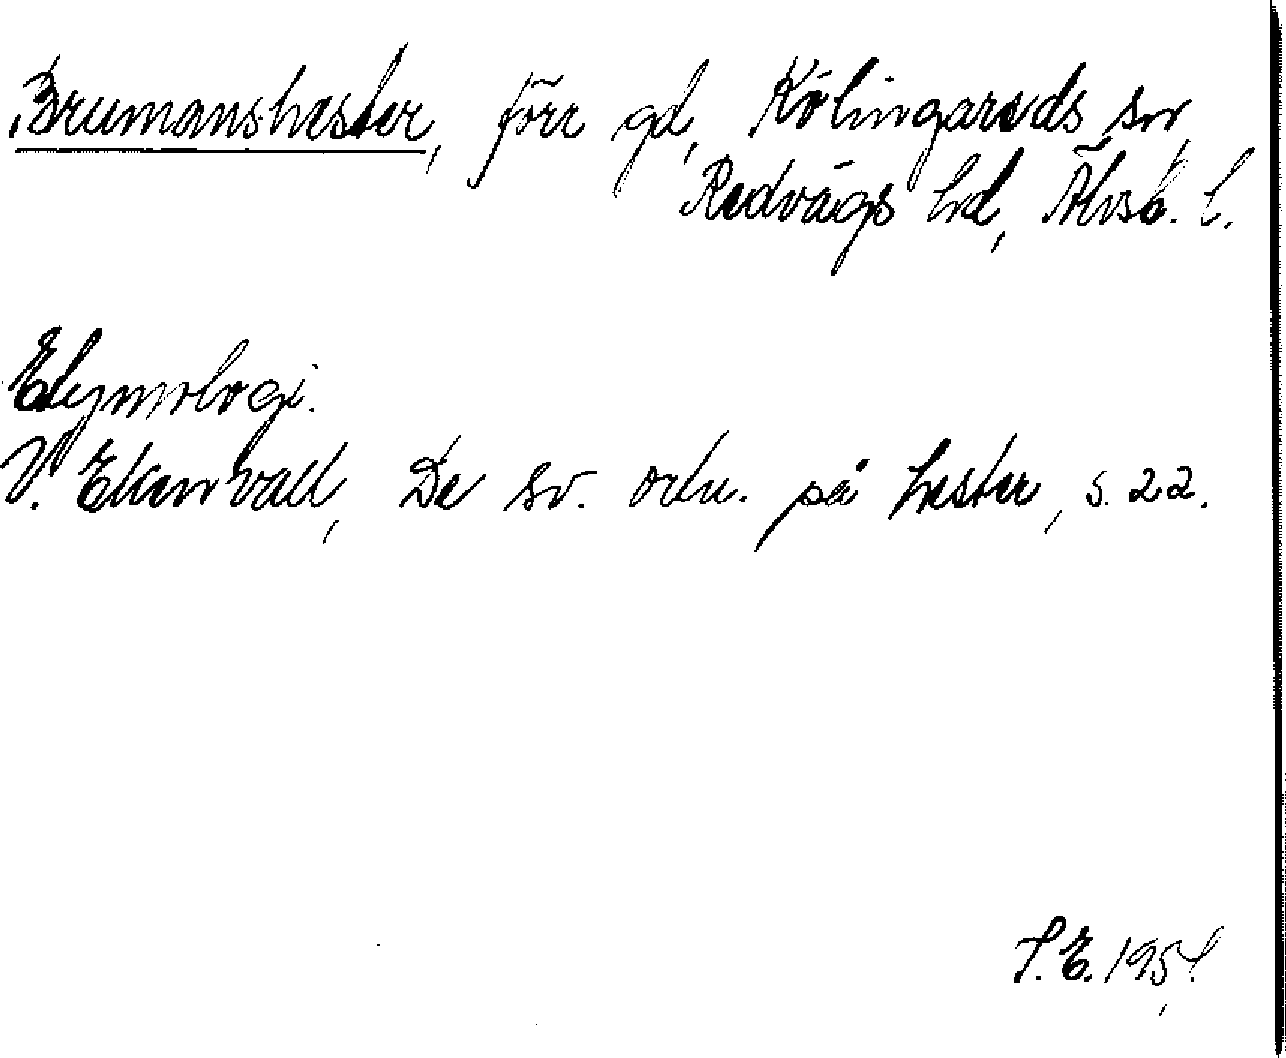 Brumanshester, förr gd, Kölingareds sn,
Redvägs hd, Älvsb. l.
Etymologi.
V. Ekenvall, De sv. ortn. på hester, s. 22.
S.E. 1954.